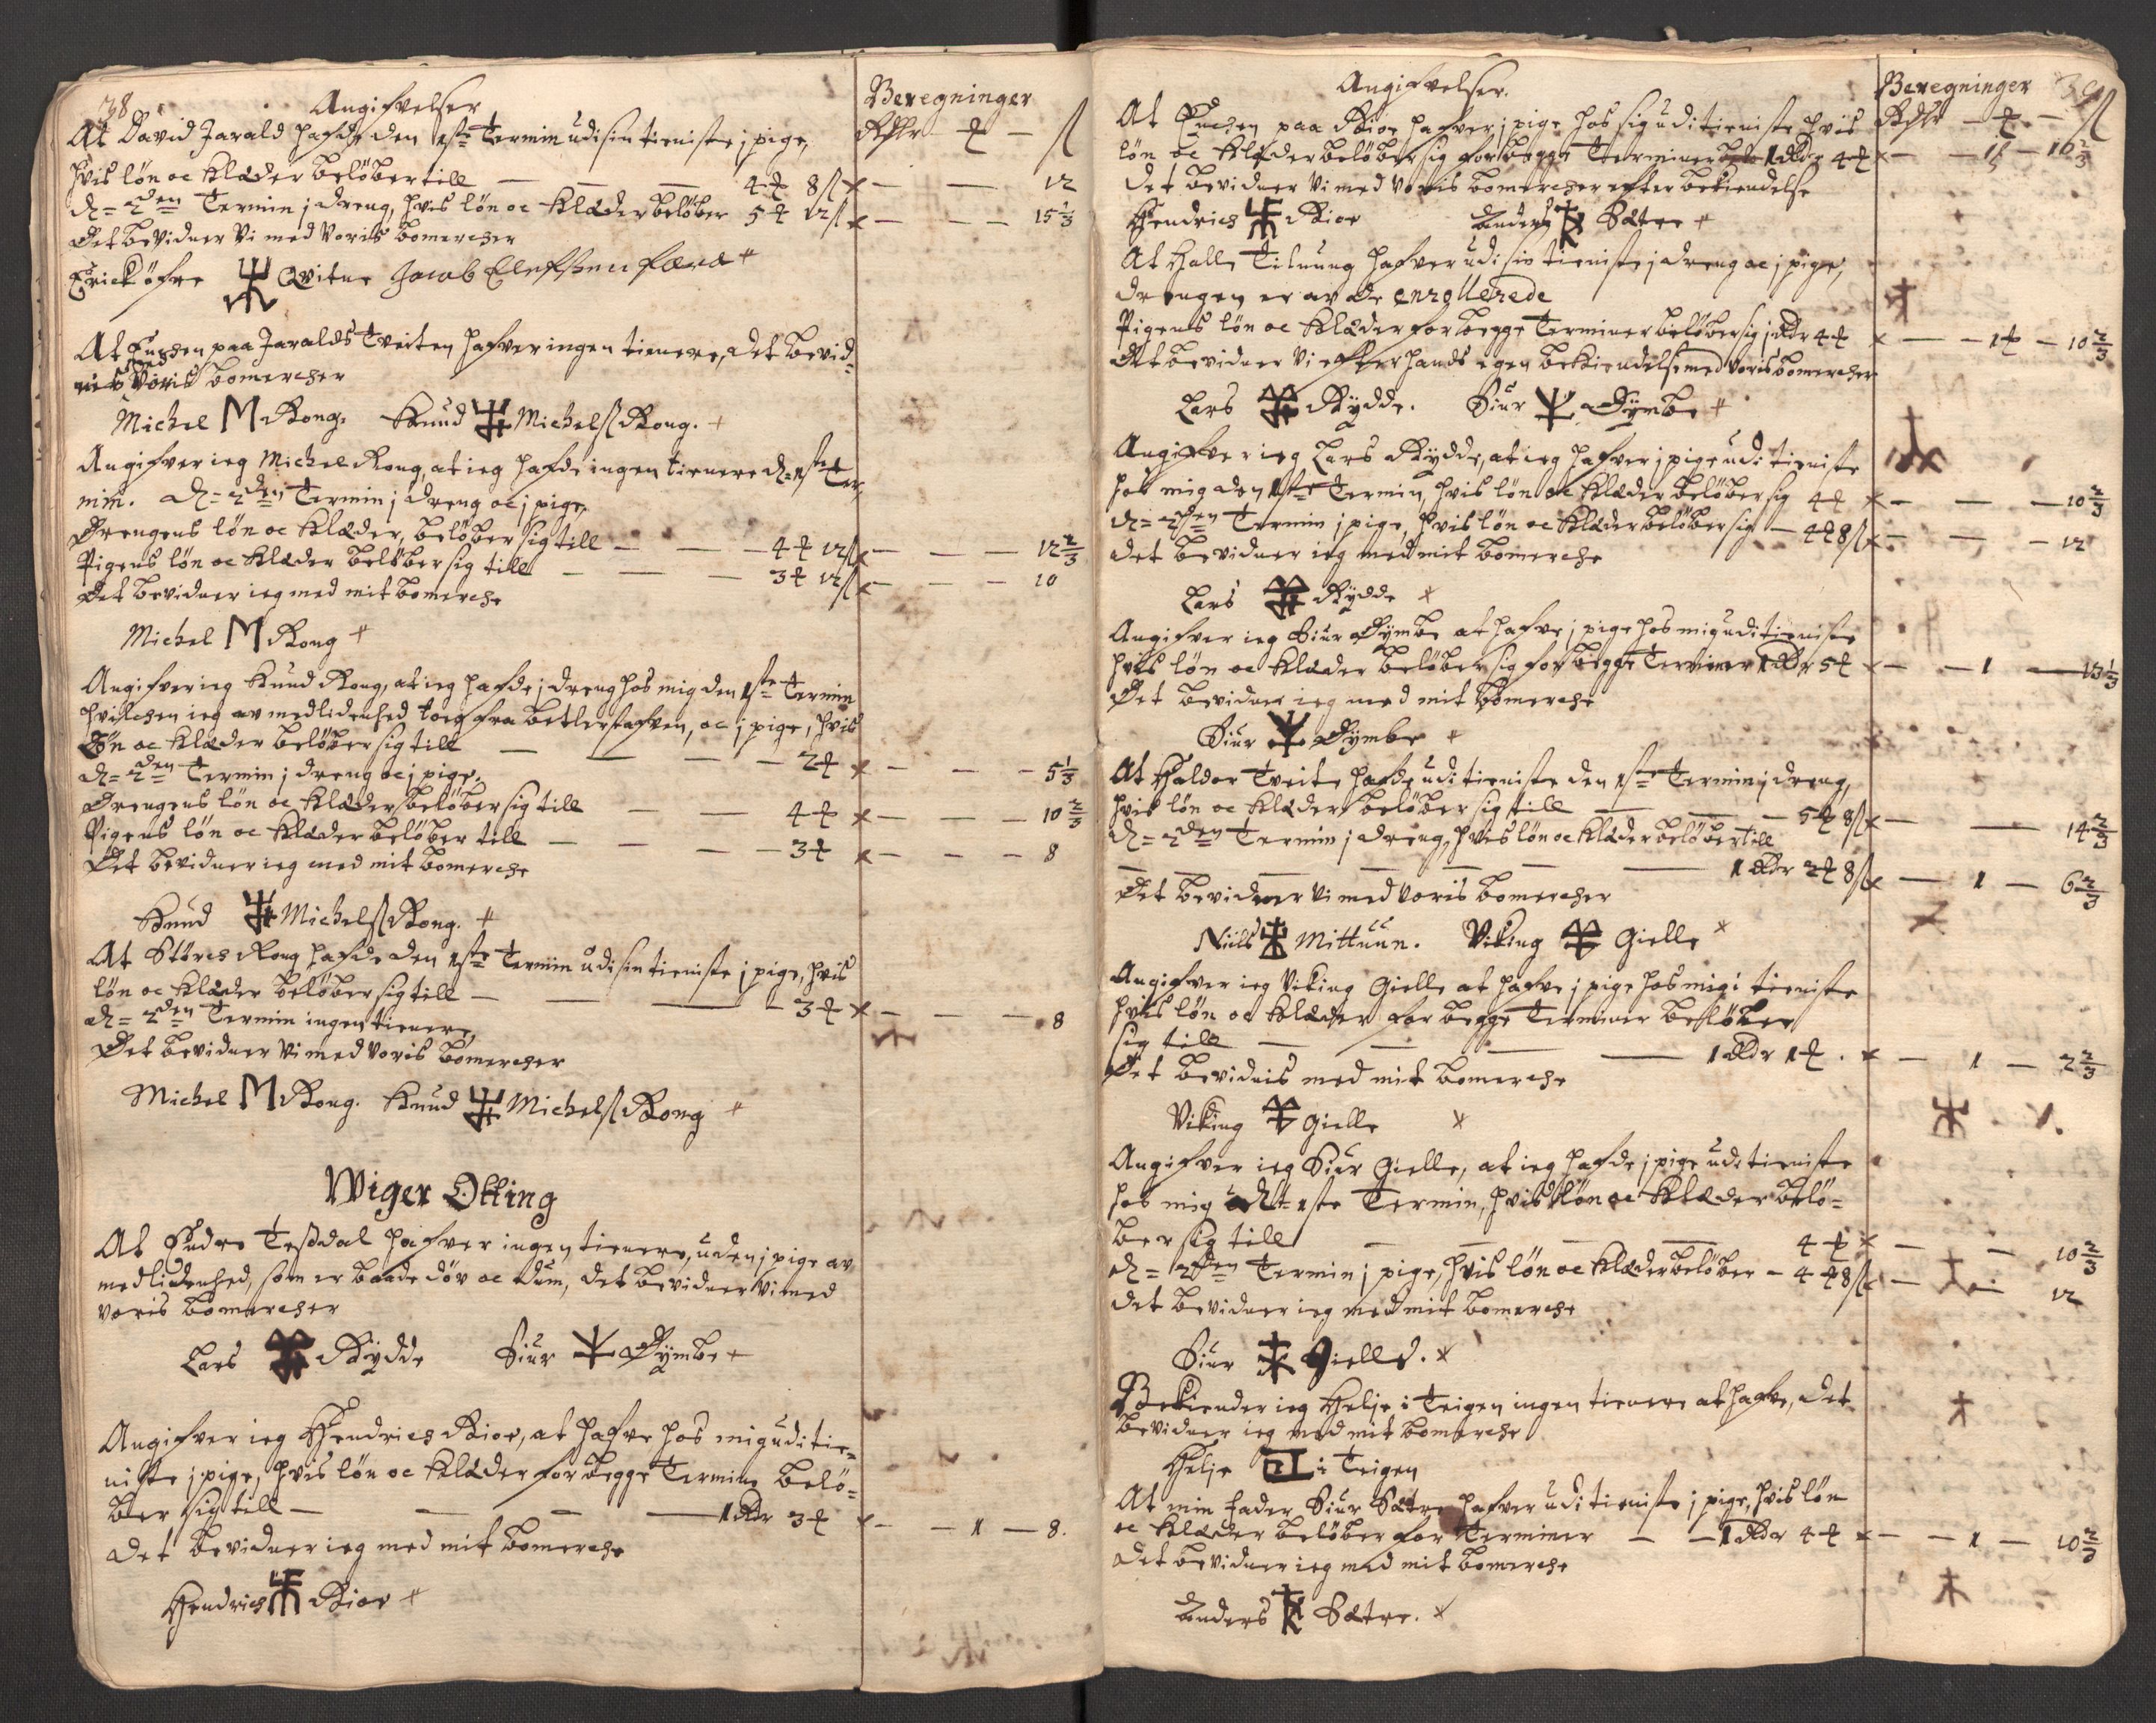 38
Angifvelser
Beregninger
At David Jarald hafde den 1ste Termin udi sin tieniste j pige,
Rdlr – ⁊ – ß
hvis lön oc Klæder belöber till — — 4 ⁊ 8 ß × — — 12
d= 2den Termin j dreng, hvis lön oc Klæder belöber 5 ⁊ 12 ß × — — 15 1/3
Det bevidner Vi med Voris bomercher
Erick öfre Qvitne Jacob Elefssen Færø
At Enchen paa Jaralds Tveiten hafver ingen tienere, det bevid-
nis med Voris bomercher
Michel M Rong. Knud Michelß Rong.
Angifver ieg Michel Rong, at ieg hafde ingen tienere d= 1ste Ter-
min. d= 2den Termin j dreng oc j pige,
Drengens lön oc Klæder, belöber sig till — — 4 ⁊ 12 ß × — — 12 2/3
Pigens lön oc Klæder belöber sig till — — 3 ⁊ 12 ß × — — 10
Det bevidner ieg med mit bomerche
Michel M Rong
Angifver ieg Knud Rong, at ieg hafde j dreng hos mig den 1ste Termin
hvilchen ieg av medlidenhed toeg fra betlerstafven, oc j pige, hvis
Lön oc Klæder belöber sig till — — 2 ⁊ × — — 5 1/3
d= 2den Termin j dreng oc j pige,
Drengens lön oc Klæder belöber sig till — — 4 ⁊ × — — 10 2/3
Pigens lön oc Klæder belöber till — — 3 ⁊ × — — 8
Det bevidner ieg med mit bomerche
Knud Michelß Rong.
At Störes Rong hafde den 1ste Termin udi sin tieniste j pige, hvis
lön oc Klæder belöber sig till — — 3 ⁊ × — — 8
d= 2den Termin ingen tienere,
Det bevidner Vi med Voris bomercher
Michel M Rong. Knud Michelß Rong
Wiger Otting
At Endre Tessdal hafver ingen tienere, uden j pige av
medlidenhed, som er baade döv oc dum, det bevidner Vi med
voris bomercher
Lars Rydde Siur Dymbe
Angifver ieg Hendrich Kior, at hafve hos mig udi tie-
niste j pige, hvis lön oc Klæder for begge Termine belö-
ber sig till — — 1 Rdr 3 ⁊ × — 1 — 8.
Det bevidner ieg med mit bomerche
Hendrich Kior
Angifvelser.
Beregninger 39
At Enchen paa Kior hafver j pige hos sig udi tieniste hvis
Rdlr – ⁊ – ß
lön oc Klæder belöber sig for begge Terminer 1 Rdr 4 ⁊ × — 1 — 10 2/3
Det bevidner Vi med Voris bomercher efter bekiendelse
Hendrich Kior Anders Sætre
At Halle Tilnung hafver udi sin tieniste j dreng oc j pige,
drengen er av de enrollerede
Pigens lön oc Klæder for begge Terminer belöber sig j Rdr 4 ⁊ × — 1 ⁊ — 10 2/3
Det bevidner Vi effter hands egen bekiendelse med voris bomercher
Lars Rydde. Siur Dymbe
Angifver ieg Lars Rydde, at ieg hafver j pige udi tieniste
hos mig den 1ste Termin, hvis lön oc Klæder belöber sig 4 ⁊ × — — 10 2/3
d= 2den Termin j pige, hvis lön oc Klæder belöber sig — 4 ⁊ 8 ß × — — 12
Det bevidner ieg med mit bomerche
Lars Rydde
Angifver ieg Siur Dymbe at hafve j pige hos mig udi tieniste
hvis lön oc Klæder belöber sig for begge Terminer 1 Rdr 5 ⁊ × — 1 — 13 1/3
Det bevidner ieg med mit bomerche
Siur Dymbe
At Haldor Tveite hafde udi tieniste den 1ste Termin j dreng,
hvis lön oc Klæder belöber sig till — — 5 ⁊ 8 ß × — — 14 2/3
d= 2den Termin j dreng, hvis lön oc Klæder belöber till
— — — 1 Rdr 2 ⁊ 8 ß × — 1 — 6 2/3
Det bevidner Vi med voris bomercher
Niils Mittuun. Viking Gielle
Angifver ieg Viking Gielle at hafve j pige hos mig i tieniste
hvis lön oc Klæder for begge Terminer belöber
sig till — — 1 Rdr 1 ⁊. × — 1 — 2 2/3
Det bevidnis med mit bomerche
Viking Gielle
Angifver ieg Siur Gielle, at ieg hafde j pige udi tieniste
hos mig d= 1ste Termin, hvis lön oc Klæder belö-
ber sig till — — 4 ⁊ × — — 10 2/3
d= 2den Termin j pige, hvis lön oc Klæder belöber — 4 ⁊ 8 ß × — — 12
Det bevidner ieg med mit bomerche
Siur Gielle.
Bekiender ieg Helje i Teigen ingen tienere at hafve, det
bevidner ieg med mit bomerche
Helje i Teigen
At min fader Siur Sætre hafver udi tieniste j pige, hvis lön
oc Klæder belöber for Terminer — — 1 Rdr 4 ⁊ × — 1 — 10 2/3
Det bevidner ieg med mit bomerche
Anders Sætre.